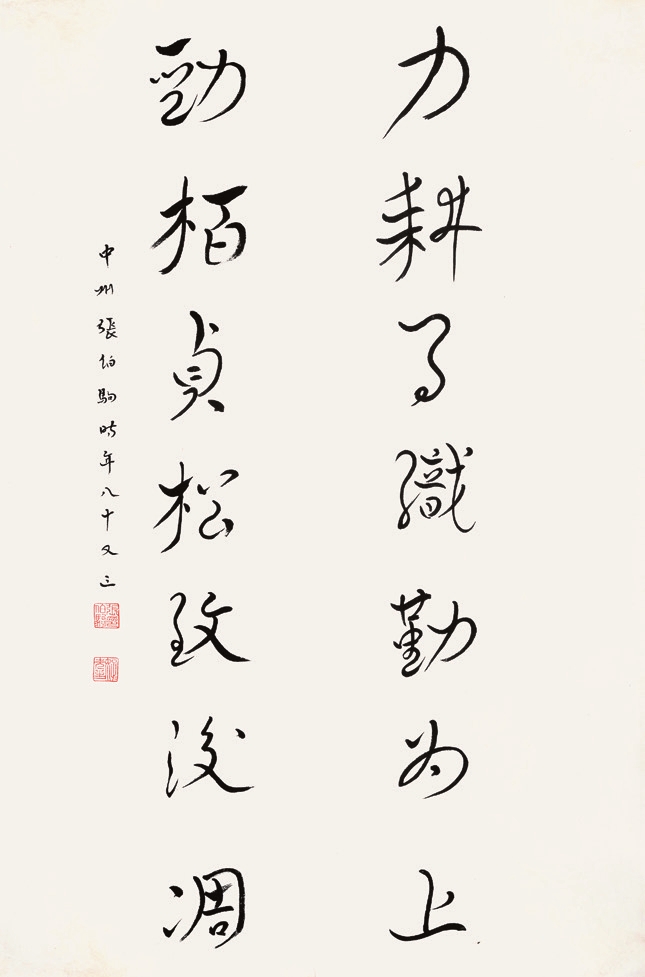 力耕織勤为上
勁柏貞松致後凋
中州張伯駒時年八十又三